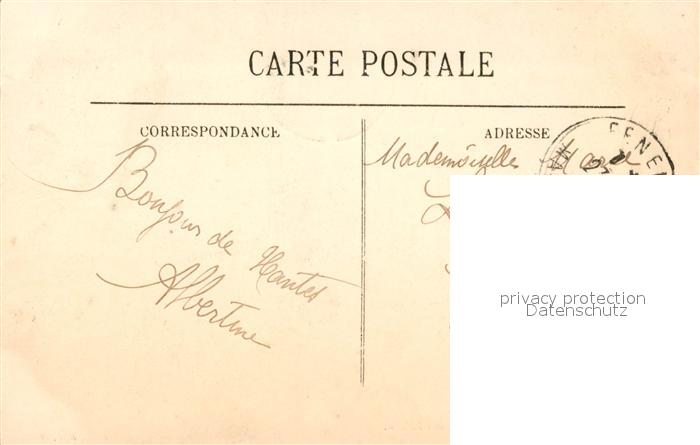 CARTE POSTALE
CORRESPONDANCE
ADRESSE
Mademoiselle
Bonjour de Nantes
Albertine
privacy protection
Datenschutz